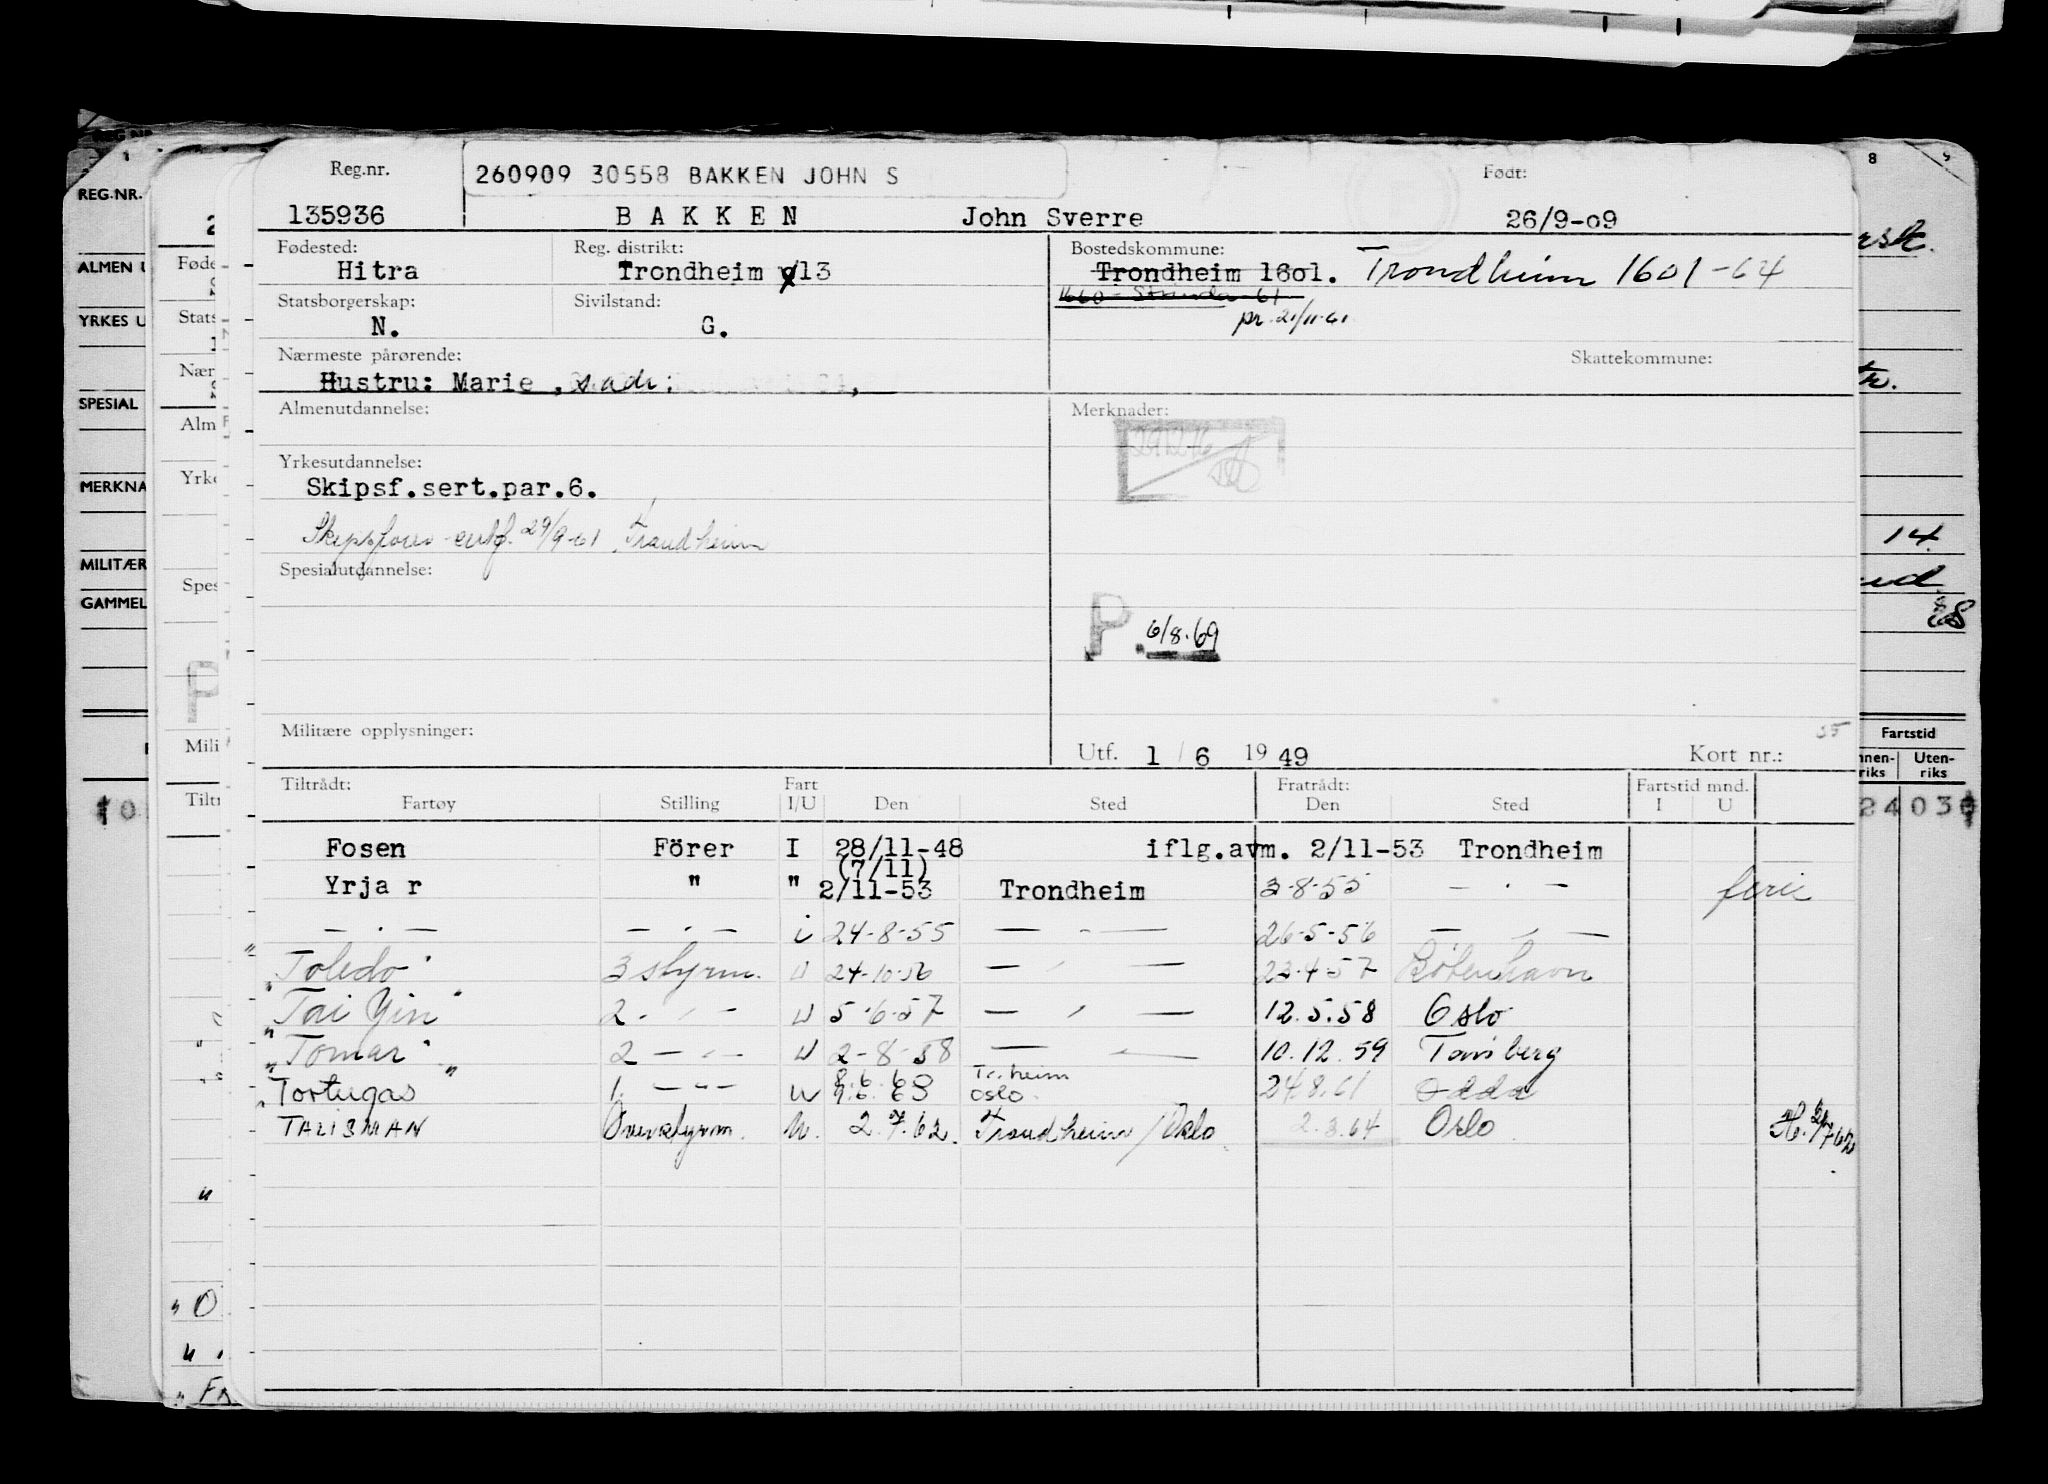 Reg.nr.
260909 30558 BAKKEN JOHN S
Født:
135936 BAKKEN John Sverre 26/9-09
Fødested: Reg. distrikt: Bostedskommune:
Hitra Trondheim 13 Trondheim 16ol. Trondheim 1601-64
Statsborgerskap: Sivilstand: 1660 - Strinda - 61
N. G. pr. 21/11-61
Nærmeste pårørende: Skattekommune:
Hustru: Marie , s adr:
Almenutdannelse: Merknader:
Yrkesutdannelse:
Skipsf.sert.par.6.
29/9-61 Trondheim
Spesialutdannelse:
P. 6/8.69
Militære opplysninger:
Utf. 1 / 6 1949 Kort nr.:
Tiltrådt: Fart Fratrådt: Fartstid mnd.
Fartøy Stilling I/U Den Sted Den Sted I U
Fosen Förer I 28/11-48 iflg.avm. 2/11-53 Trondheim
(7/11)
Yrja r " " 2/11-53 Trondheim 3-8-55 — . — ferie
— . — — . — i 24-8-55 — . — 26-5-56 — . —
"Toledo" 3 styrm. U 24-10-56 — . — 23-4-57 København
"Tai Yin" 2. — . — U 5-6-57 — . — 12.5.58 Oslo
"Tomar" 2 — . — U 2-8-58 — . — 10.12.59 Tønsberg
"Tortugas" 1. — . — U Tr.heim Oslo 24.8.61 Odda
TALISMAN Overstyrm. U. 2.7.62. Trondheim/Oslo. 2.3.64 Oslo
REG.NR.
ALMEN U
YRKES U
SPESIAL
MERKNA
MILITÆR
GAMMEL
Føde
Stats
Nær
Alm
Yrke
Spes
P
Mili
Tiltr
8
14
Fartstid
Innen-
riks
Uten-
riks
2403